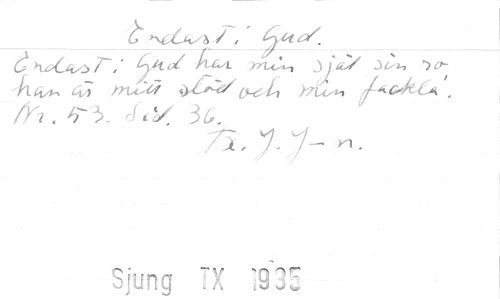 Endast i Gud.
Endast i Gud har min själ sin ro
han är mitt stöd och min fackla.
Nr. 53. Sid. 36.
Tx. J. J-n.
Sjung TX 1935